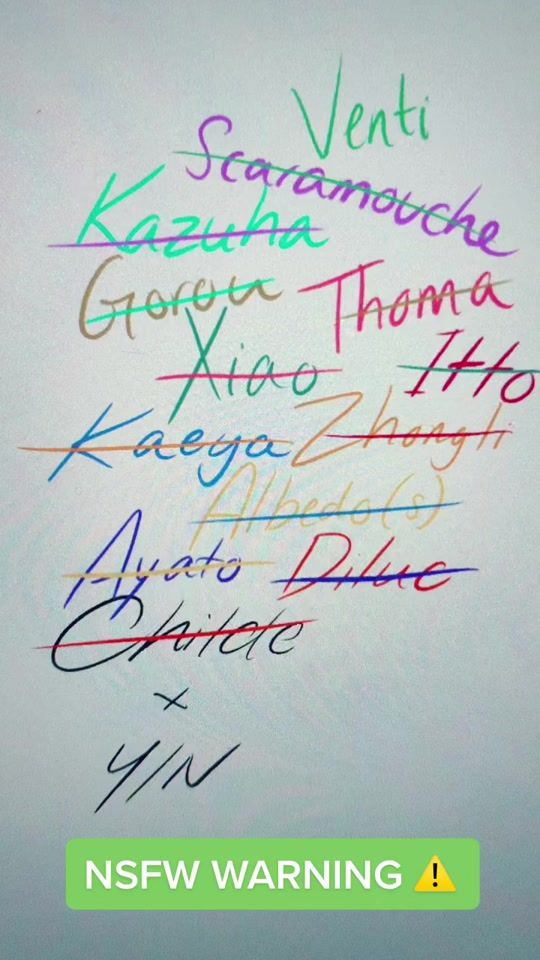 Venti
Scaramouche
Kazuha
Gorou Thoma
Xiao Itto
Kaeya Zhongli
Albedo(s)
Ayato Diluc
Childe
x
Y/N
NSFW WARNING ⚠️